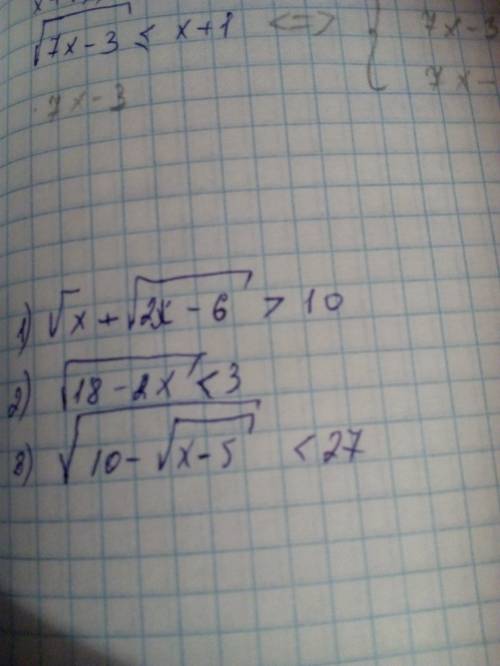 √7x-3 ≤ x+1 <=> { 7x-3
7x-3 7x-
1) √x + √2x - 6 > 10
2) √18 - 2x < 3
3) √10 - √x-5 < 27